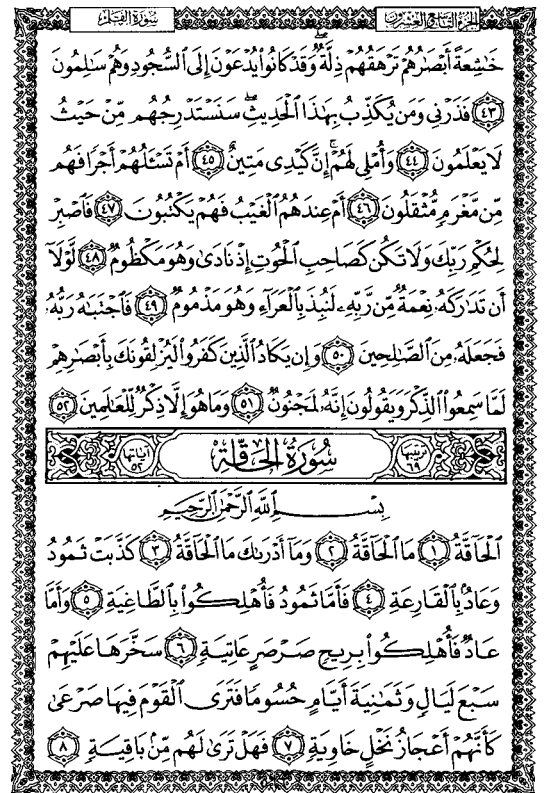 الجزء التاسع والعشرون سورة القلم
خَاشِعَةً أَبْصَارُهُمْ تَرْهَقُهُمْ ذِلَّةٌ ۖ وَقَدْ كَانُوا۟ يُدْعَوْنَ إِلَى ٱلسُّجُودِ وَهُمْ سَالِمُونَ
٤٣ فَذَرْنِى وَمَن يُكَذِّبُ بِهَٰذَا ٱلْحَدِيثِ ۖ سَنَسْتَدْرِجُهُم مِّنْ حَيْثُ
لَا يَعْلَمُونَ ٤٤ وَأُمْلِى لَهُمْ ۚ إِنَّ كَيْدِى مَتِينٌ ٤٥ أَمْ تَسْـَٔلُهُمْ أَجْرًا فَهُم
مِّن مَّغْرَمٍ مُّثْقَلُونَ ٤٦ أَمْ عِندَهُمُ ٱلْغَيْبُ فَهُمْ يَكْتُبُونَ ٤٧ فَٱصْبِرْ
لِحُكْمِ رَبِّكَ وَلَا تَكُن كَصَاحِبِ ٱلْحُوتِ إِذْ نَادَىٰ وَهُوَ مَكْظُومٌ ٤٨ لَّوْلَآ
أَن تَدَارَكَهُۥ نِعْمَةٌ مِّن رَّبِّهِۦ لَنُبِذَ بِٱلْعَرَآءِ وَهُوَ مَذْمُومٌ ٤٩ فَٱجْتَبَاهُ رَبُّهُۥ
فَجَعَلَهُۥ مِنَ ٱلصَّالِحِينَ ٥٠ وَإِن يَكَادُ ٱلَّذِينَ كَفَرُوا۟ لَيُزْلِقُونَكَ بِأَبْصَارِهِمْ
لَمَّا سَمِعُوا۟ ٱلذِّكْرَ وَيَقُولُونَ إِنَّهُۥ لَمَجْنُونٌ ٥١ وَمَا هُوَ إِلَّا ذِكْرٌ لِّلْعَالَمِينَ ٥٢
ترتيبها ٦٩ سُورَةُ الحَاقَّةِ آياتها ٥٢
بِسْمِ ٱللَّهِ ٱلرَّحْمَٰنِ ٱلرَّحِيمِ
ٱلْحَآقَّةُ ١ مَا ٱلْحَآقَّةُ ٢ وَمَآ أَدْرَىٰكَ مَا ٱلْحَآقَّةُ ٣ كَذَّبَتْ ثَمُودُ
وَعَادٌۢ بِٱلْقَارِعَةِ ٤ فَأَمَّا ثَمُودُ فَأُهْلِكُوا۟ بِٱلطَّاغِيَةِ ٥ وَأَمَّا
عَادٌ فَأُهْلِكُوا۟ بِرِيحٍ صَرْصَرٍ عَاتِيَةٍ ٦ سَخَّرَهَا عَلَيْهِمْ
سَبْعَ لَيَالٍ وَثَمَٰنِيَةَ أَيَّامٍ حُسُومًا فَتَرَى ٱلْقَوْمَ فِيهَا صَرْعَىٰ
كَأَنَّهُمْ أَعْجَازُ نَخْلٍ خَاوِيَةٍ ٧ فَهَلْ تَرَىٰ لَهُم مِّنۢ بَاقِيَةٍ ٨